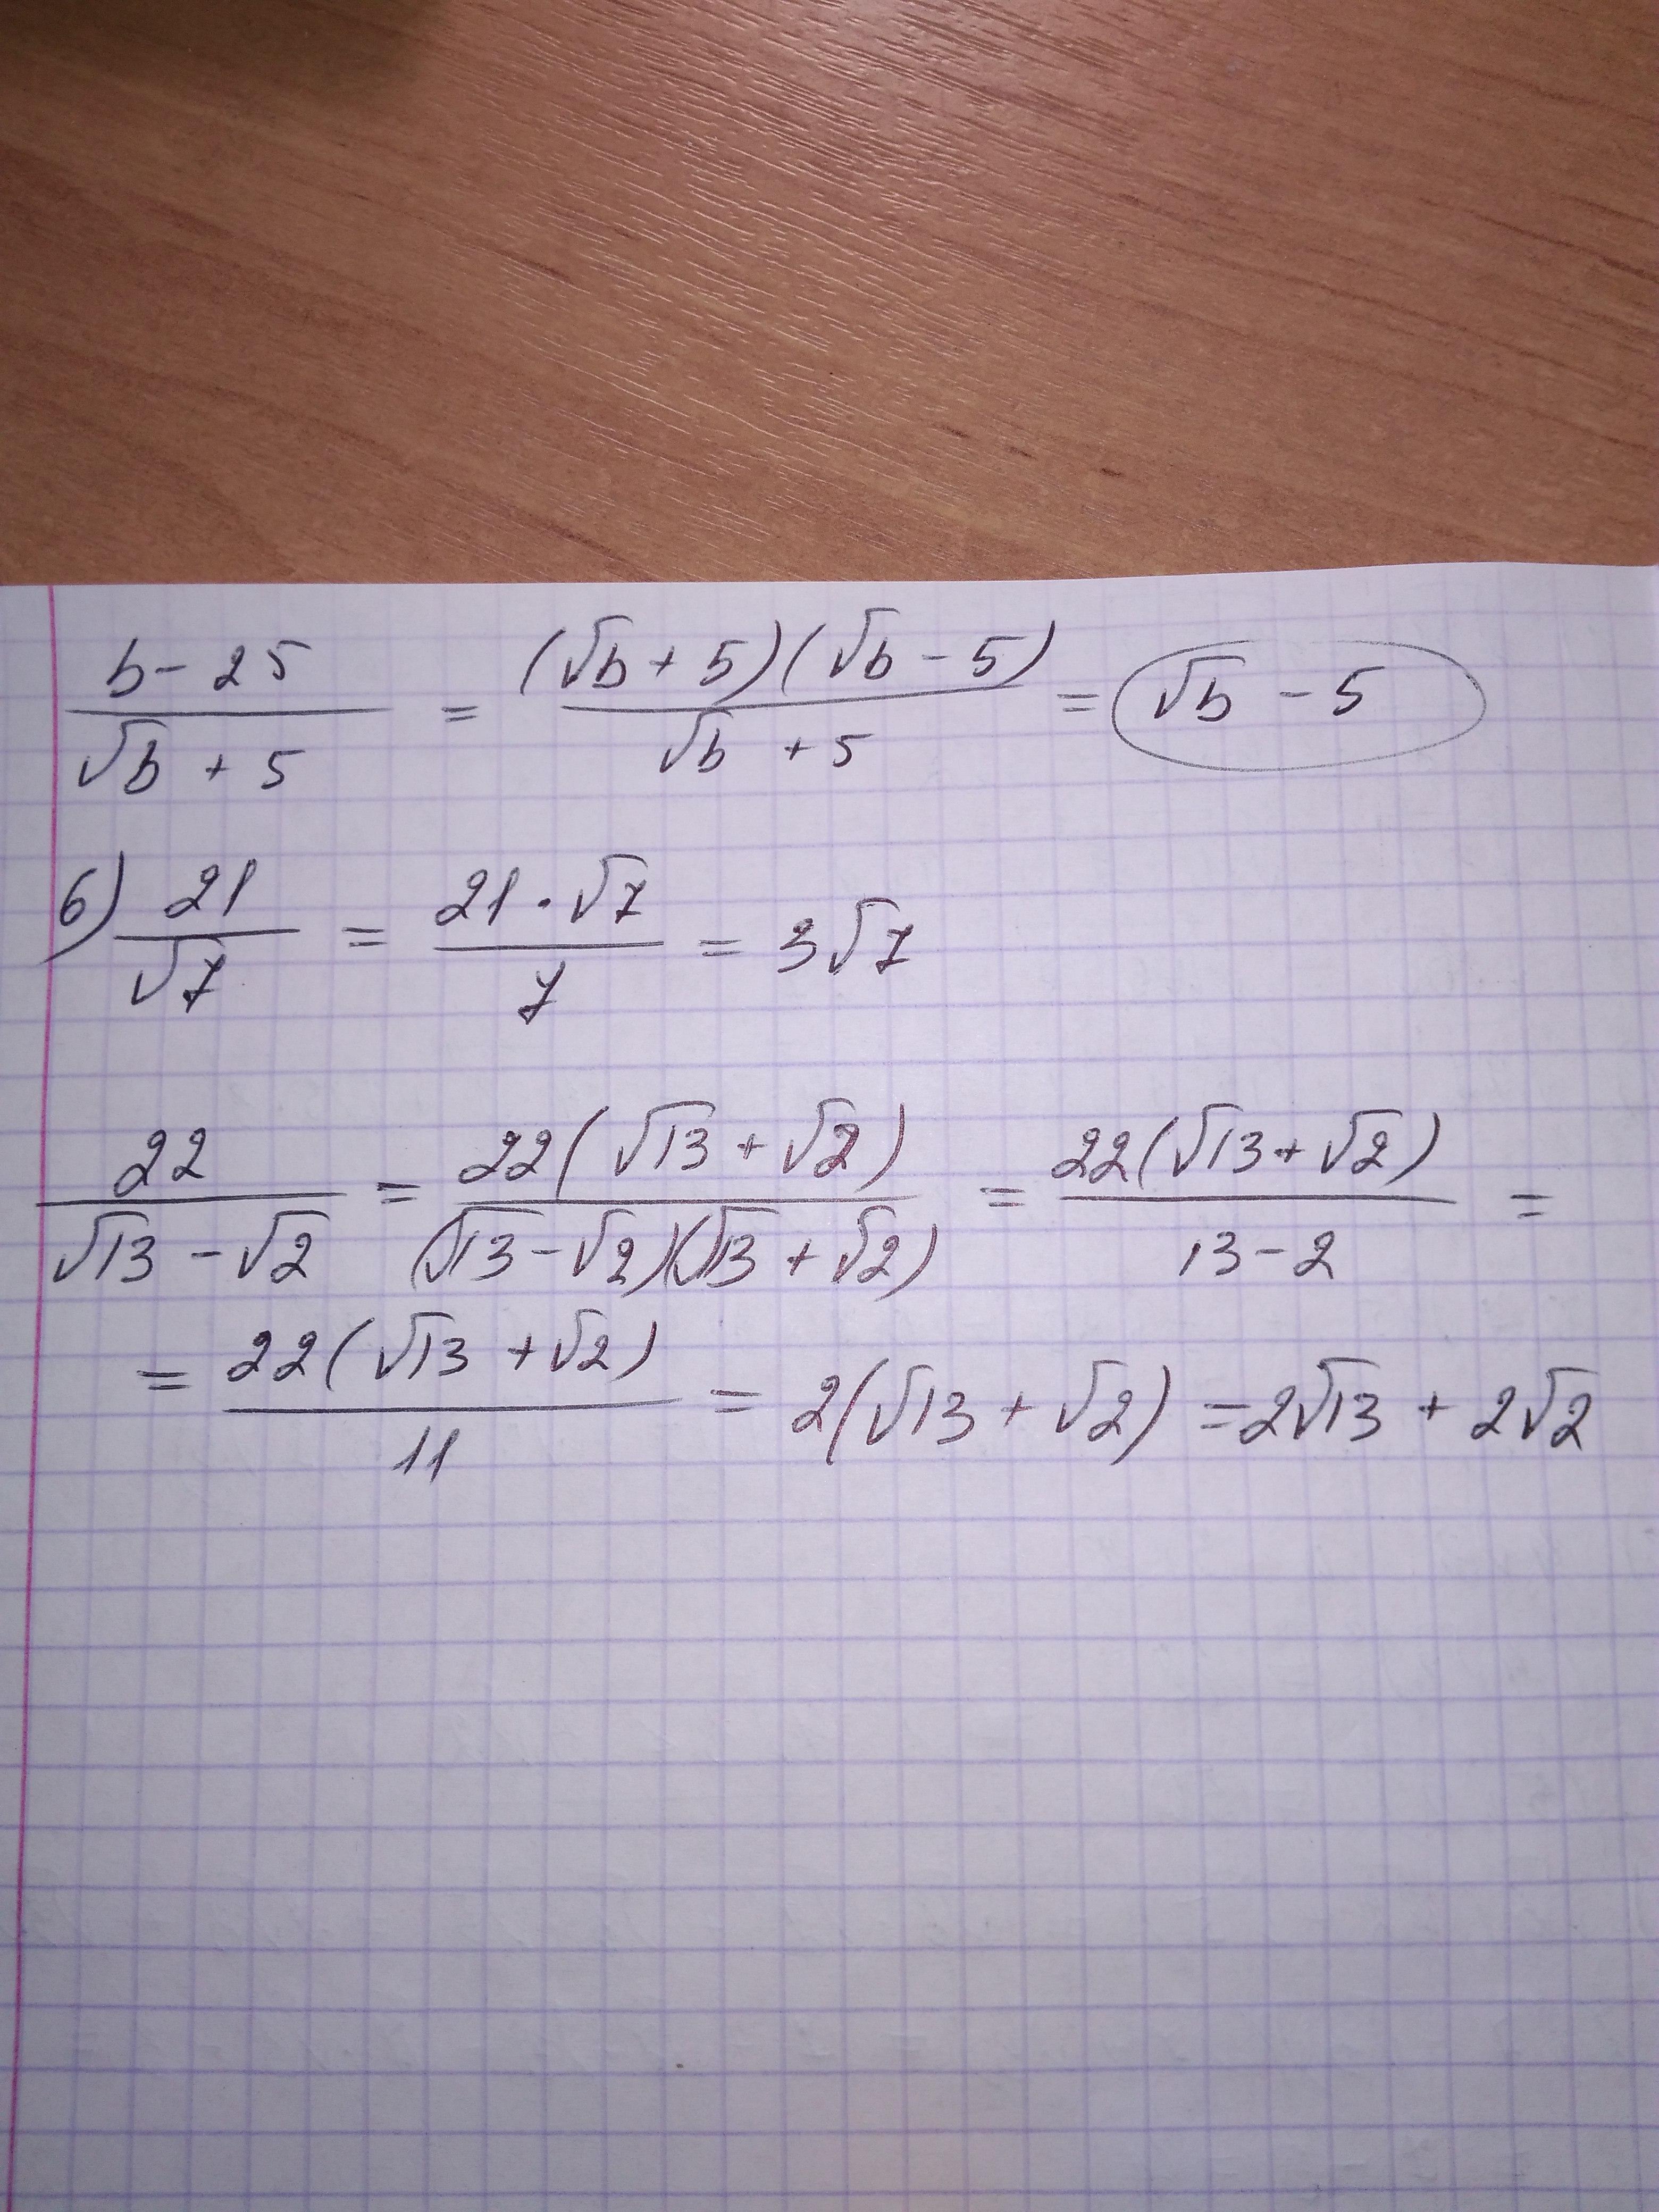 (b - 25)/(√b + 5) = ((√b + 5)(√b - 5))/(√b + 5) = √b - 5
6) 21/√7 = (21 · √7)/7 = 3√7
22/(√13 - √2) = (22(√13 + √2))/((√13 - √2)(√13 + √2)) = (22(√13 + √2))/(13 - 2) =
= (22(√13 + √2))/11 = 2(√13 + √2) = 2√13 + 2√2